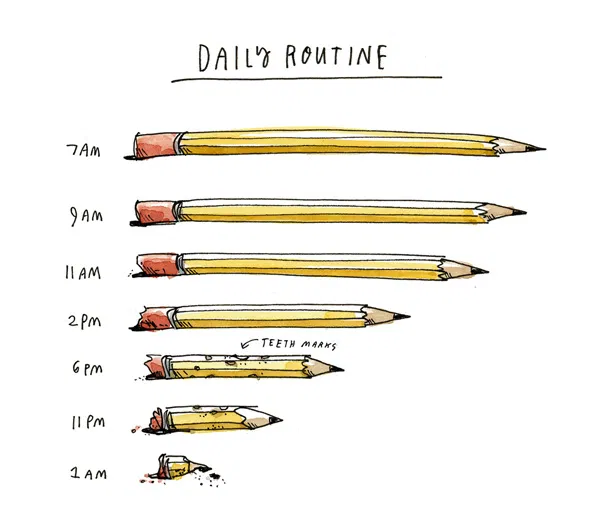 DAILY ROUTINE
7AM
9AM
11AM
2PM
TEETH MARKS
6PM
11PM
1AM